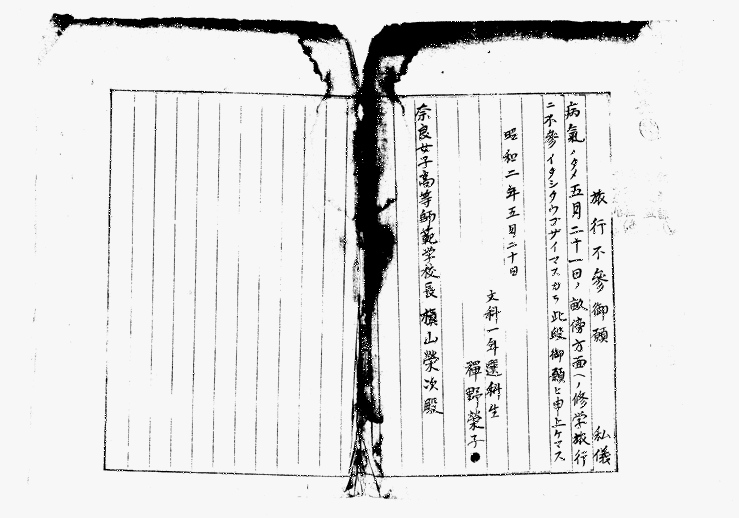 旅行不參御願
私儀
病氣ノタメ五月二十一日、畝傍方面ヘノ修学旅行
ニ不參イタシタウゴザイマスカラ此段御願ヒ申上ケマス
昭和二年五月二十日
文科一年選科生
禪野榮子
奈良女子高等師範学校長 槇山榮次殿